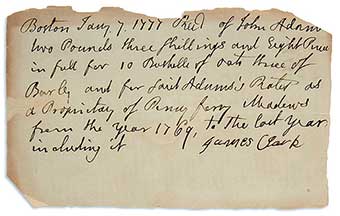 Boston Jany 7. 1777 Recd of John Adams
two Pounds three Shillings and Eight Pence
in full for 10 Bushells of Oats three of
Barly and for said Adams's Rates as
a Proprietor of Penny ferry Meadows
from the Year 1769, to the last Year
including it James Clark